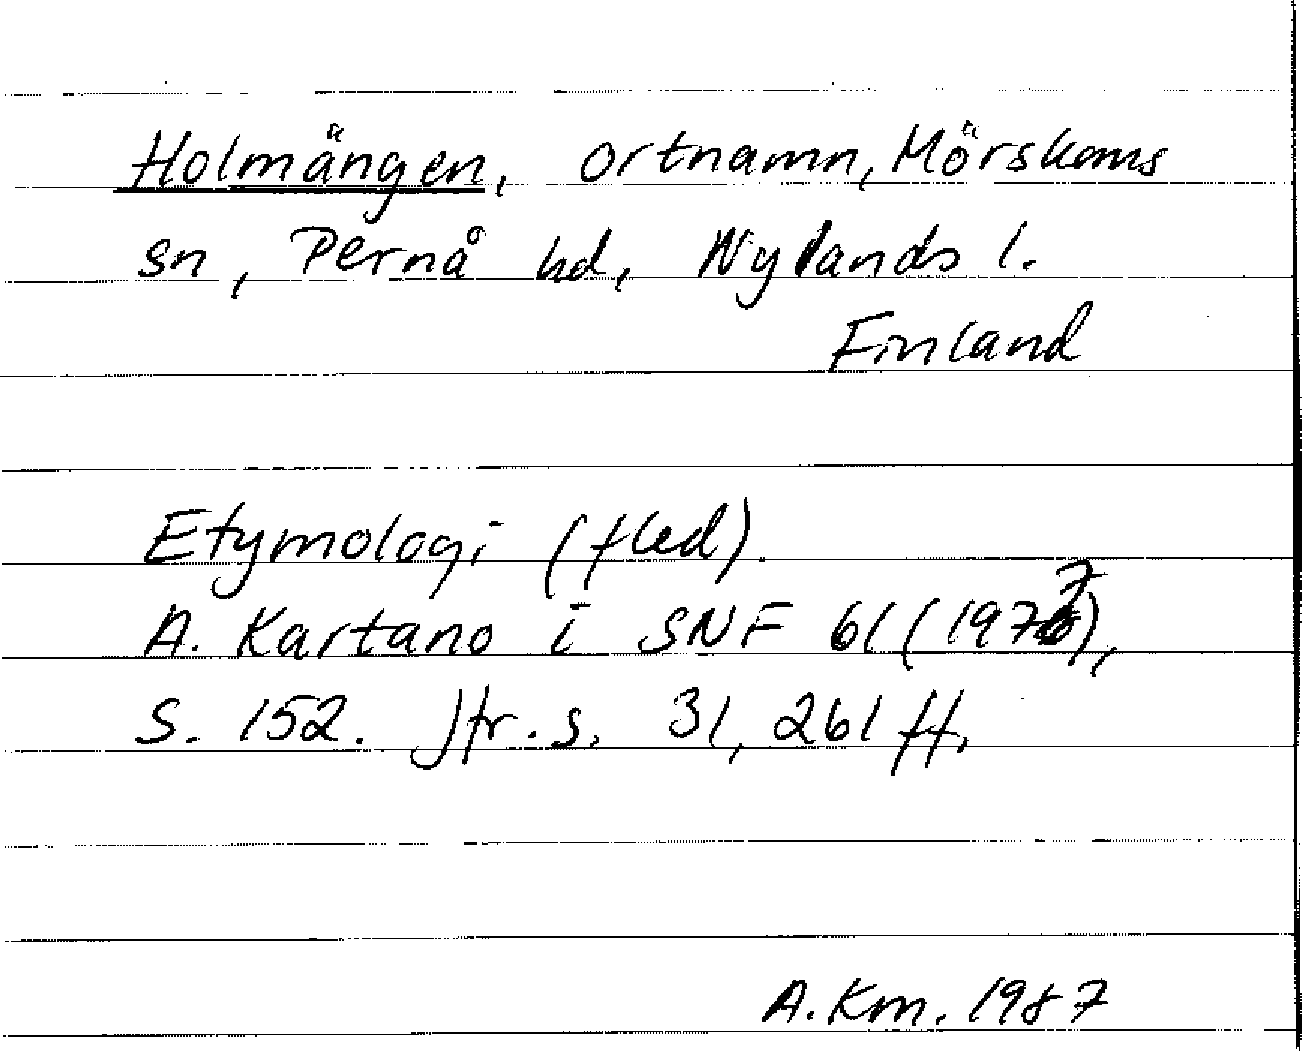 Holmängen, ortnamn, Mörskoms
sn, Pernå hd, Nylands l.
Finland
Etymologi (fled).
A. Kartano i SNF 61 (1977),
S. 152. Jfr. s. 31, 261 ff.
A. Km. 1987